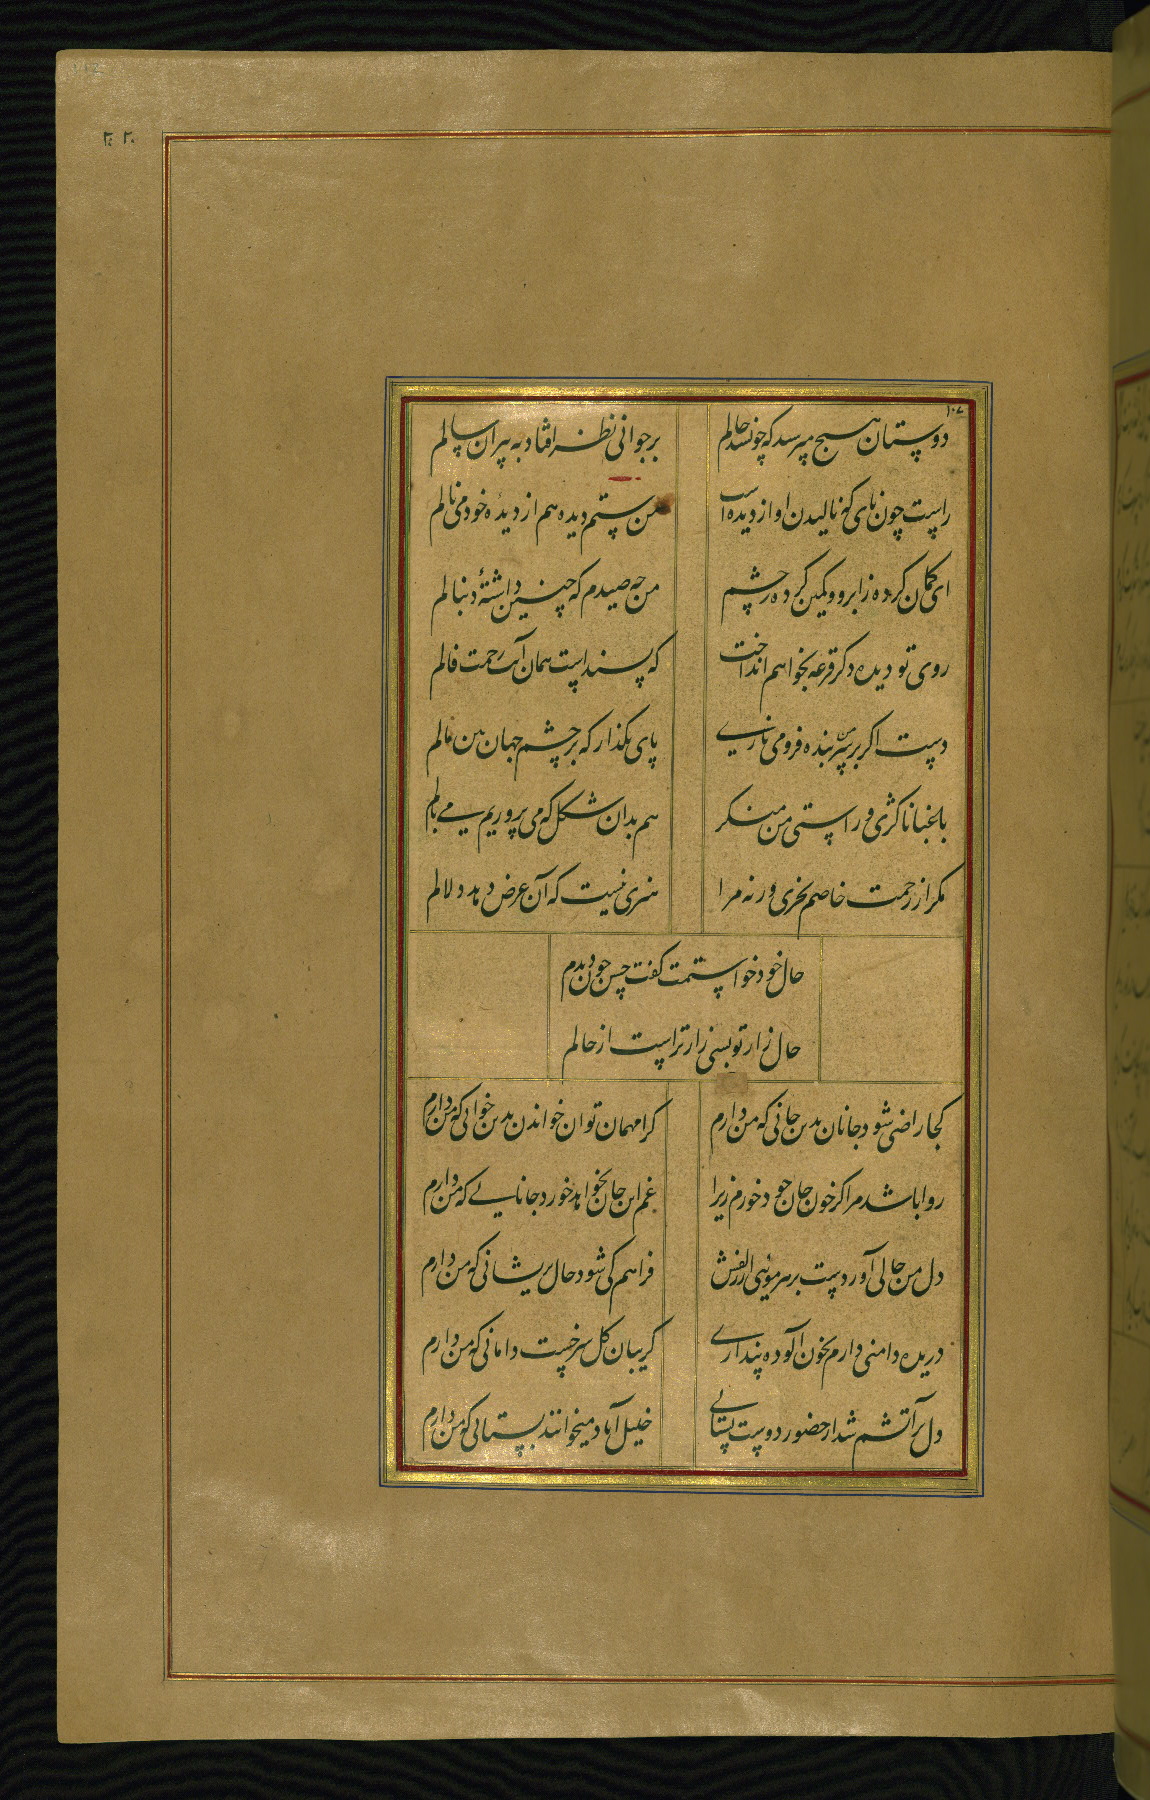 ۱۰۷
دوستان هیچ مپرسید که چونشد حالم
بر جوانی نظر افتاد به پیران سالم
راست چون نای که نالیدن او از دیده است
من ستم دیده هم از دیدۀ خود می نالم
ای کمان کرده ز ابرو و کمین کرده ز چشم
من چه صیدم که چنین داشتۀ دنبالم
روی تو دیده دکر قرعه نخواهم انداخت
که پسند است همان آیت رحمت فالم
دست اگر بر سر بنده فرو می ناری
پای بگذار که بر چشم جهان بین مالم
باغبانا کژی و راستی من منکر
هم بدان شکل که می پروریم می بالم
مکر از رحمت خاصم بخری ورنه مرا
هنری نیست که آن عرض دهد دلالم
حال خود خواستمت گفت چون دیدم
حال زار تو بسی زارتر است از حالم
کجا راضی شود جانان بدین جانی که من دارم
کرا مهمان توان خواندن بدین خوانی که من دارم
روا باشد مرا کر خون جان خود خورم زیرا
غم این جان نخواهد خورد جانانی که من دارم
دل من حالی آورد بر سر مویی از زلفش
فراهم کی شود حال پریشانی که من دارم
دریده دامنی دارم بخون آلوده پنداری
کریبان کل سرخست دامانی که من دارم
دل پر آتشم شد از حضور دوست بستانی
خلیل آباد میخوانند بستانی که من دارم